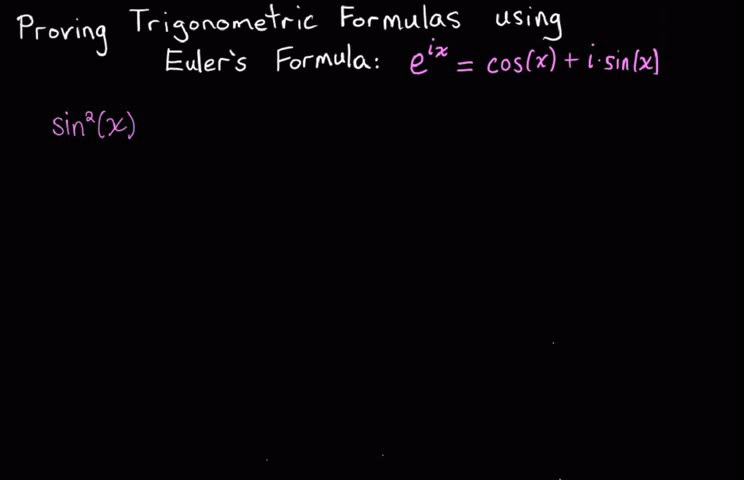 Proving Trigonometric Formulas using
Euler's Formula: e^{ix} = cos(x) + i·sin(x)
sin²(x)